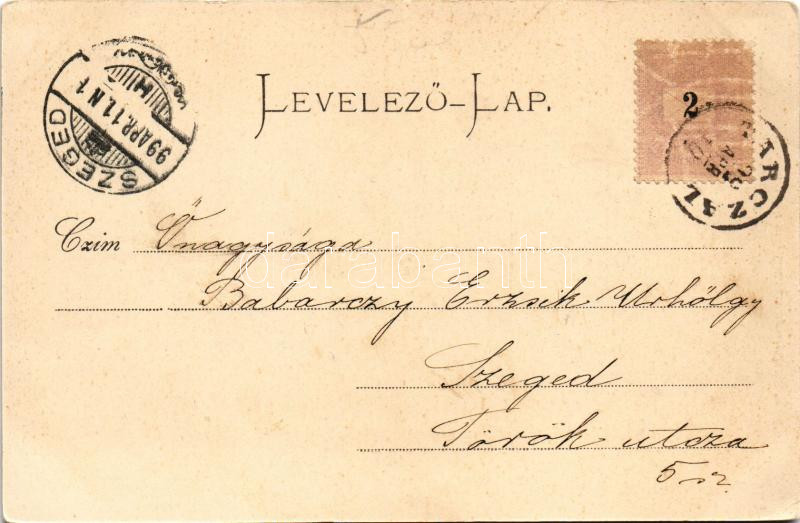 LEVELEZŐ-LAP.
SZEGED
99 APR. 11. N 1
2
TARCZAL
99 APR
Czim Őnagysága
Babarczy Erzsik Urhölgy
darabanth
Szeged
Török utcza
5 sz.